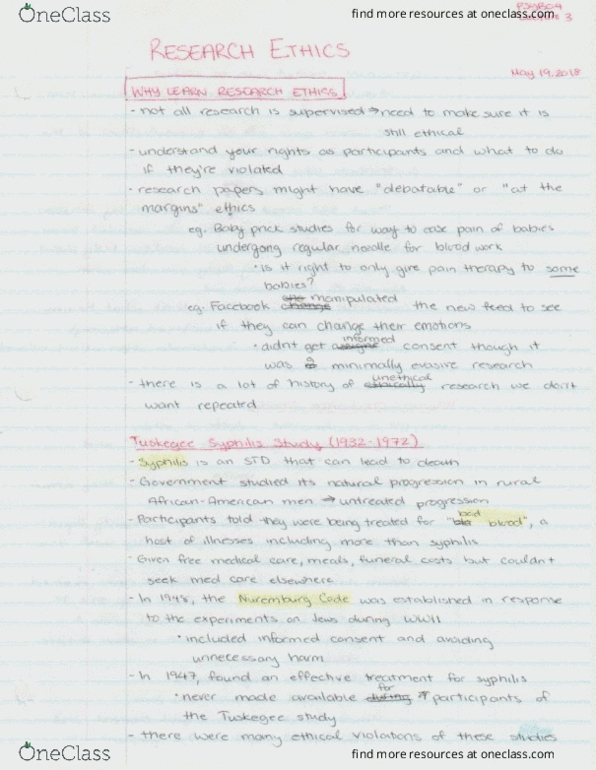 OneClass
find more resources at oneclass.com
3
RESEARCH ETHICS
May 19.2018
WHY LEARN RESEARCH ETHICS
- not all research is supervised → need to make sure it is
still ethical
- understand your rights as participants and what to do
if they're violated
- research papers might have "debatable" or "at the
margins" ethics
eg. Baby prick studies for way to ease pain of babies
undergong regular needle for blood work
• Is it right to only give pain therapy to some
babies?
eg. Facebook manipulated the new feed to see
if they can change their emotions
• didnt get informed consent though it
was a minimally evasive research
- there is a lot of history of unethical research we don't
want repeated
Tuskegee Syphilis Study (1932-1972)
- Syphilis is an STD that can lead to death
- Government studied its natural progression in rural
African-American men → untreated progression
- Participants told they were being treated for "bad blood", a
host of illnesses including more than syphilis
- Given free medical care, meals, funeral costs but couldn't
seek med care elsewhere
- In 1948, the Nuremburg Code was established in response
to the experiments on Jews during WWII
• included informed consent and avoiding
unnecessary harm
- In 1947, found an effective treatment for syphilis
• never made available for participants of
the Tuskegee study
- there were many ethical violations of these studies
OneClass
find more resources at oneclass.com